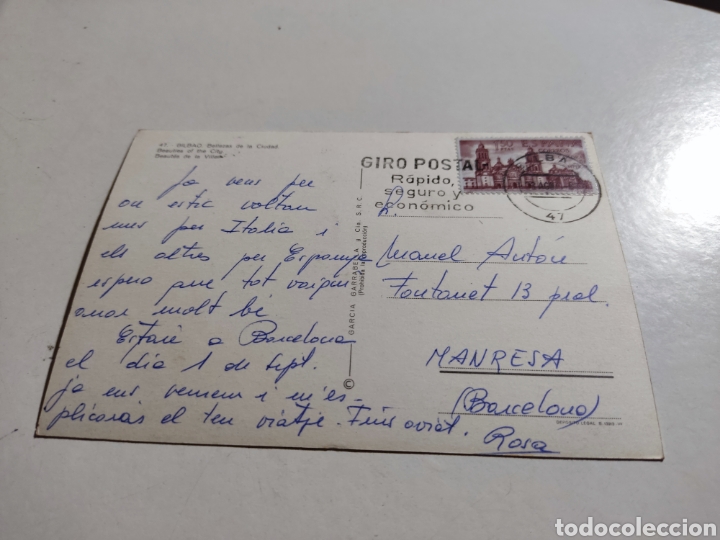 BILBAO Bellezas de la Ciudad
Beauties of the City
Beautés de la Ville
Ja veus per
on estic voltan
uns per Italia i
els altres per Espanya
espero que tot vaigui
anar molt bé
Estaré a Barcelona
el dia 1 de Sept.
ja ens veurem i m'es-
plicarás el teu viatje. Fins aviat.
Rosa
GARCIA GARRABELLA y Cía. S.R.C.
(Prohibida la reproducción)
©
GIRO POSTAL
Rápido,
seguro y
económico
47
Manel Antón
Fontanet 13 pral.
MANRESA
(Barcelona)
DEPOSITO LEGAL B.
todocoleccion